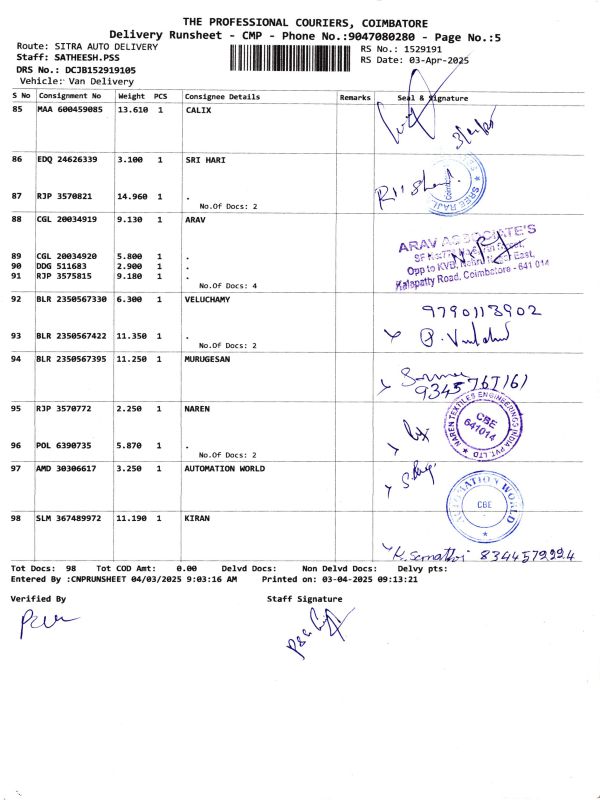 THE PROFESSIONAL COURIERS, COIMBATORE
Delivery Runsheet - CMP - Phone No.:9047080280 - Page No.:5
Route: SITRA AUTO DELIVERY
RS No.: 1529191
Staff: SATHEESH.PSS
RS Date: 03-Apr-2025
DRS No.: DCJB152919105
Vehicle: Van Delivery
S No Consignment No Weight PCS Consignee Details Remarks Seal & Signature
85 MAA 600459085 13.610 1 CALIX
86 EDQ 24626339 3.100 1 SRI HARI
87 RJP 3570821 14.960 1 .
No.Of Docs: 2
88 CGL 20034919 9.130 1 ARAV
ARAV ASSOCIATE'S
89 CGL 20034920 5.800 1 .
90 DDG 511683 2.900 1 .
Opp to KVB, Nehru Nagar East,
91 RJP 3575815 9.180 1 .
Kalapatty Road, Coimbatore - 641 014
No.Of Docs: 4
92 BLR 2350567330 6.300 1 VELUCHAMY
9790113902
93 BLR 2350567422 11.350 1 .
No.Of Docs: 2
94 BLR 2350567395 11.250 1 MURUGESAN
9345767161
95 RJP 3570772 2.250 1 NAREN
NAREN TEXTILES ENGINEERINGS INDIA PVT. LTD
CBE
641014
96 POL 6390735 5.870 1 .
No.Of Docs: 2
97 AMD 30306617 3.250 1 AUTOMATION WORLD
AUTOMATION WORLD
CBE
98 SLM 367489972 11.190 1 KIRAN
8344579994
Tot Docs: 98 Tot COD Amt: 0.00 Delvd Docs: Non Delvd Docs: Delvy pts:
Entered By :CNPRUNSHEET 04/03/2025 9:03:16 AM Printed on: 03-04-2025 09:13:21
Verified By
Staff Signature